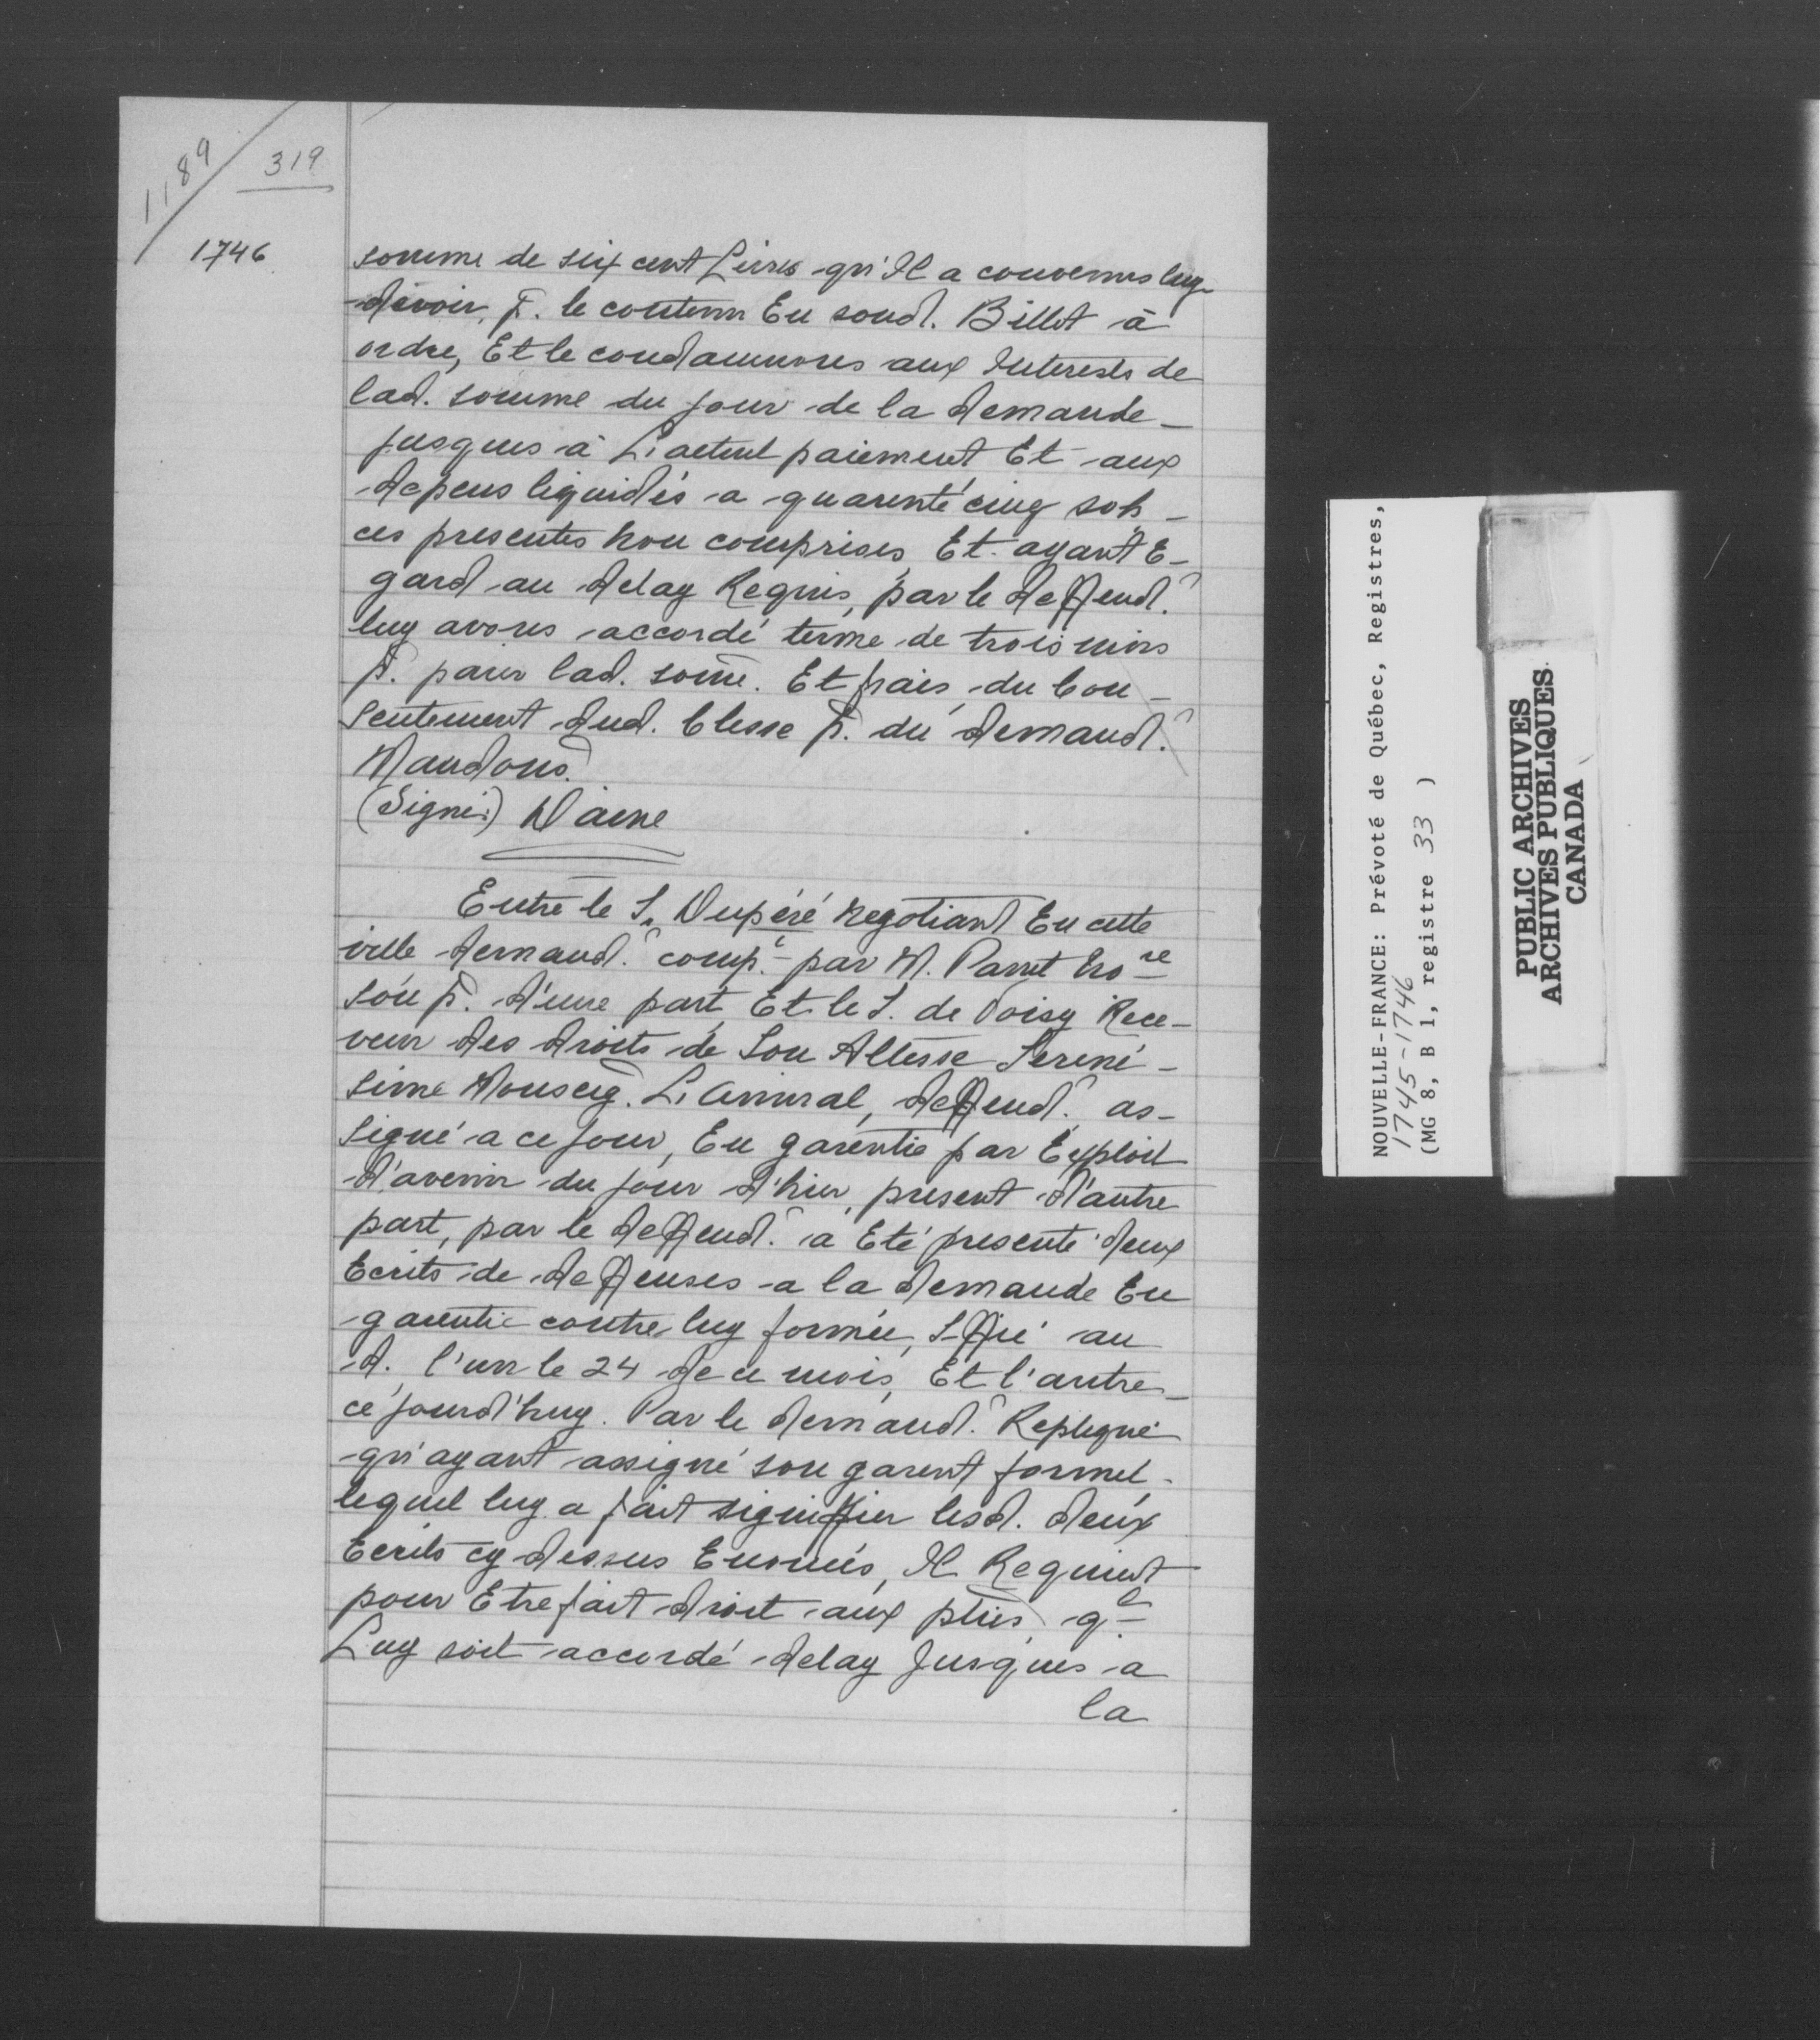 1189
319
1746
somme de six cent Livres qu'Il a convenus luy
devoir, p. le contenu En soud. Billet à
ordre, Et le condamnons aux Interests de
lad. somme du jour de la demande
jusques à L'actuel paiement Et aux
depens liquidés a quarente cinq sols
ces presentes non comprises, Et ayant E-
gard au delay Requis, par le deffend.r
luy avons accordé terme de trois mois
p. paier lad. some. Et frais, du Con-
sentement dud. Clesse p. du demand.r
Mandons.
(Signé:) Daine
Entre le S. Dupéré negotiant En cette
ville demand.r comp.t par M. Panet no.re
son p. d'une part, Et le S. de Voisy Rece-
veur des droits de Son Altesse Sereni-
sime Monseig. L'amiral, deffend.r as-
signé a ce jour, En garentie par Exploit
d'avenir du jour d'hier, present d'autre
part, par le deffend.r a Eté presenté deux
Ecrits de deffenses a la demande En
garentie contre luy formée, Sffié au
d. l'un le 24 de ce mois, Et l'autre
ce jourd'huy. Par le demand.r Repliqué
qu'ayant assigné son garent formel,
lequel luy a fait signiffier lesd. deux
Ecrits cy dessus Enoncés, Il Requiert
pour Etre fait droit aux pties, q.e
Luy soit accordé delay Jusques a
la
NOUVELLE-FRANCE: Prévoté de Québec, Registres,
1745-1746
(MG 8, B 1, registre 33 )
PUBLIC ARCHIVES
ARCHIVES PUBLIQUES
CANADA